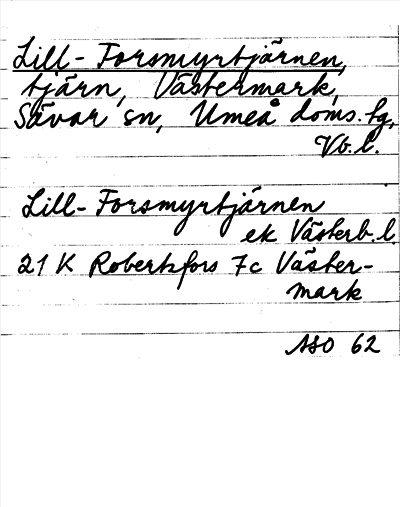 Lill-Forsmyrtjärnen,
tjärn, Västermark,
Sävar sn, Umeå doms.tg,
Vb.l.
Lill-Forsmyrtjärnen
ek Västerb.l.
21 K Robertsfors 7c Väster-
mark
ASO 62